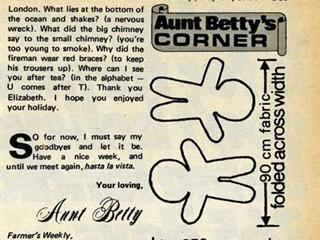 London. What lies at the bottom of
the ocean and shakes? (a nervous
wreck). What did the big chimney
say to the small chimney? (you're
too young to smoke). Why did the
fireman wear red braces? (to keep
his trousers up). Where can I see
you after tea? (in the alphabet —
U comes after T). Thank you
Elizabeth. I hope you enjoyed
your holiday.
SO for now, I must say my
goodbyes and let it be.
Have a nice week, and
until we meet again, hasta la vista.
Your loving,
Aunt Betty
Farmer's Weekly,
Aunt Betty's
CORNER
90 cm fabric
folded across width